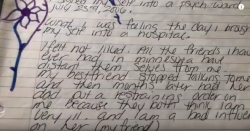 self into a psych ward
july
What I was feling the day I
my self into a hospital.
I felt not liked. All the friends i hav
ever had in minnesota have
distent them selves from me
my bestfriend stopped talking to me
and then months later had her
dad put a restraining order on
me because they both think iam
very ill. and iam a bad infl
on her boyfriend